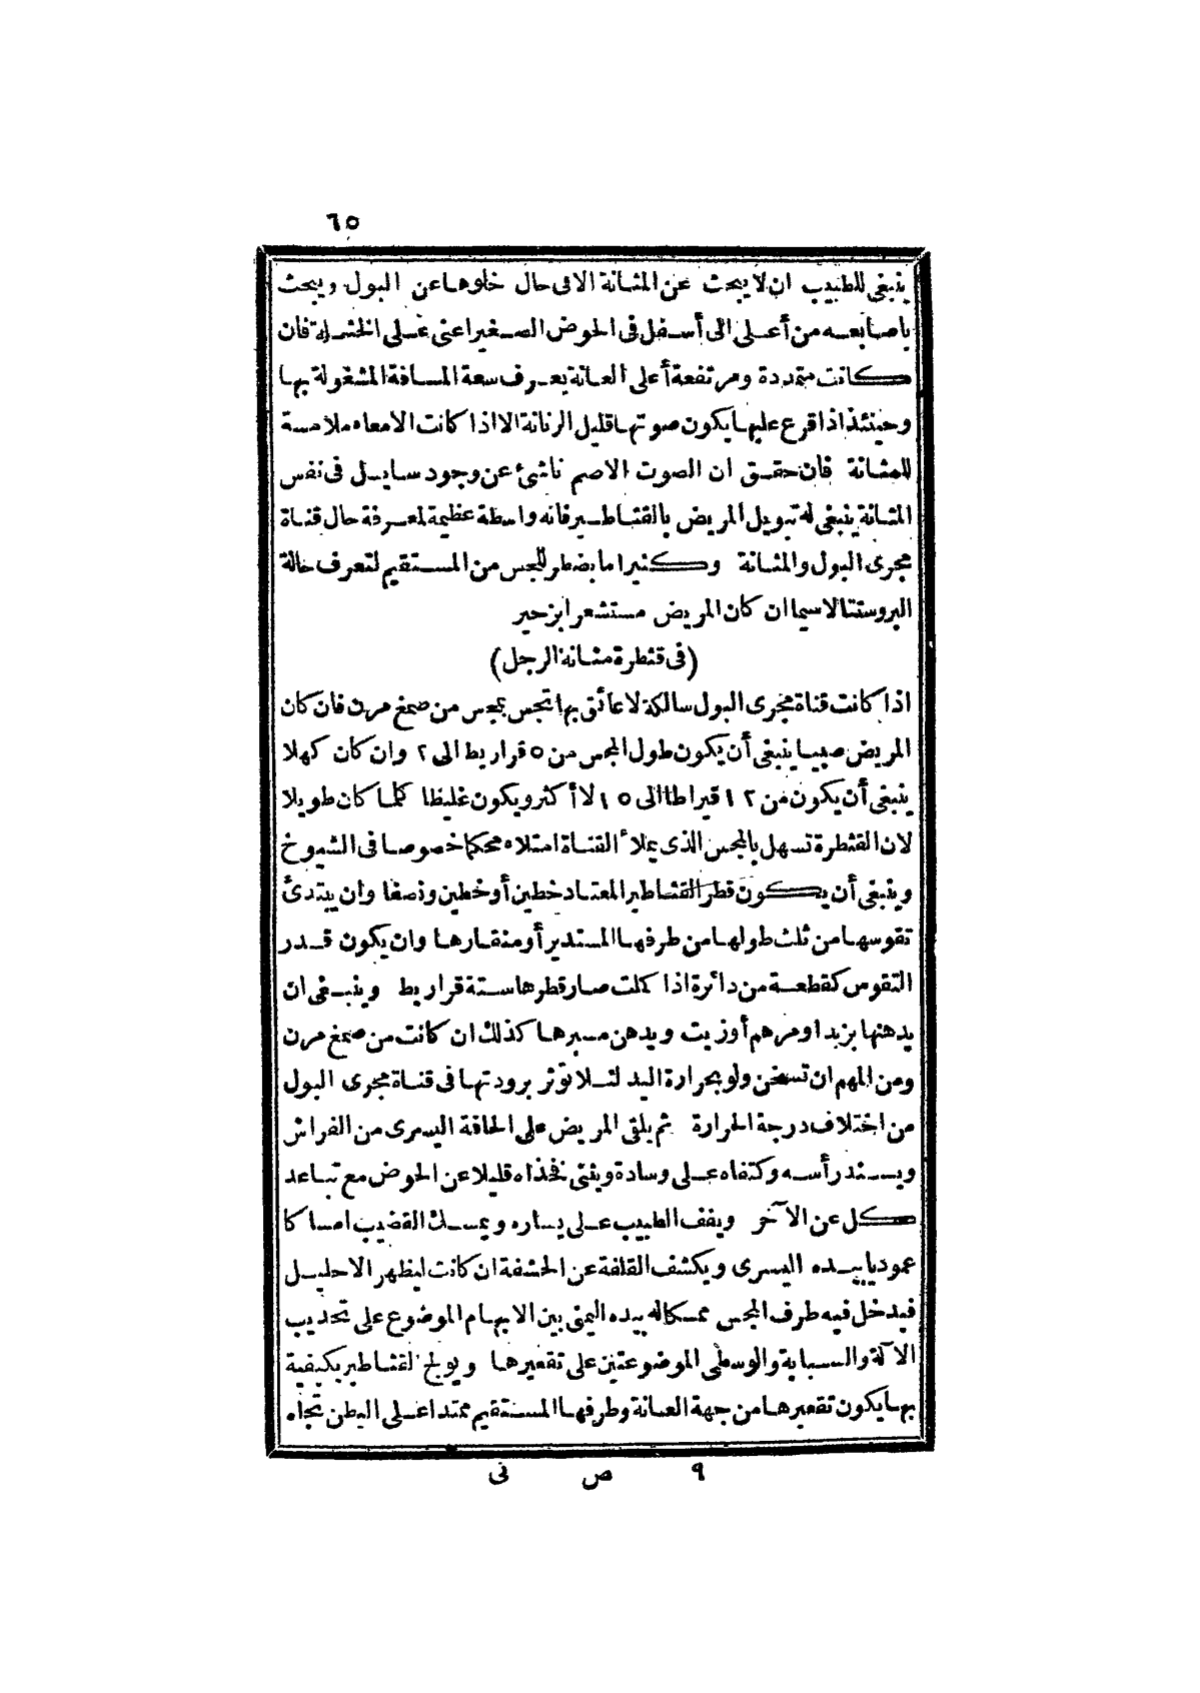 ٦٥
ينبغي للطبيب ان لا يبحث عن المثانة الا فى حال خلوها عن البول ويبحث
باصابعه من أعلى الى أسفل فى الحوض الصغير اعنى على الخثلة فان
كانت متمددة ومرتفعة أعلى العانة يعرف سعة المسافة المشغولة بها
وحينئذ اذا قرع عليها يكون صوتها قليل الرنانة الا اذا كانت الامعاء ملامسة
للمثانة فان حقق ان الصوت الاصم ناشئ عن وجود سايل فى نفس
المثانة ينبغى له تبويل المريض بالقثاطير فانه واسطة عظيمة لمعرفة حال قناة
مجرى البول والمثانة وكثيرا ما يضطر للجس من المستقيم لتعرف حالة
البروستتا لاسيما ان كان المريض مستشعرا بزحير
(فى قثطرة مثانة الرجل)
اذا كانت قناة مجرى البول سالكة لا عائق بها تجس بمجس من صمغ مرن فان كان
المريض صبيا ينبغى أن يكون طول المجس من ٥ قراريط الى ٢ وان كان كهلا
ينبغى أن يكون من ١٢ قيراطا الى ١٥ لا أكثر ويكون غليظا كلما كان طويلا
لان القثطرة تسهل بالمجس الذى يملأ القناة امتلاء محكما خصوصا فى الشيوخ
وينبغى أن يكون قطر القثاطير المعتاد خطين أو خطين ونصفا وان يبتدئ
تقوسها من ثلث طولها من طرفها المستدير أو منقارها وان يكون قدر
التقوس كقطعة من دائرة اذا كملت صار قطرها ستة قراريط وينبغى ان
يدهنها بزبد او مرهم أو زيت ويدهن مسبرها كذلك ان كانت من صمغ مرن
ومن المهم ان تسخن ولو بحرارة اليد لئلا تؤثر برودتها فى قناة مجرى البول
من اختلاف درجة الحرارة ثم يلقى المريض على الحافة اليسرى من الفراش
ويسند رأسه وكتفاه على وسادة ويثنى فخذاه قليلا عن الحوض مع تباعد
كل عن الآخر ويقف الطبيب على يساره ويمسك القضيب امساكا
عموديا بيده اليسرى ويكشف القلفة عن الحشفة ان كانت ليظهر الاحليل
فيدخل فيه طرف المجس ممسكا له بيده اليمنى بين الابهام الموضوع على تحديب
الآلة والسبابة والوسطى الموضوعتين على تقعيرها ويولج القثاطير بكيفية
بها يكون تقعيرها من جهة العانة وطرفها المستقيم ممتدا على البطن تجاه
٩ ص نى